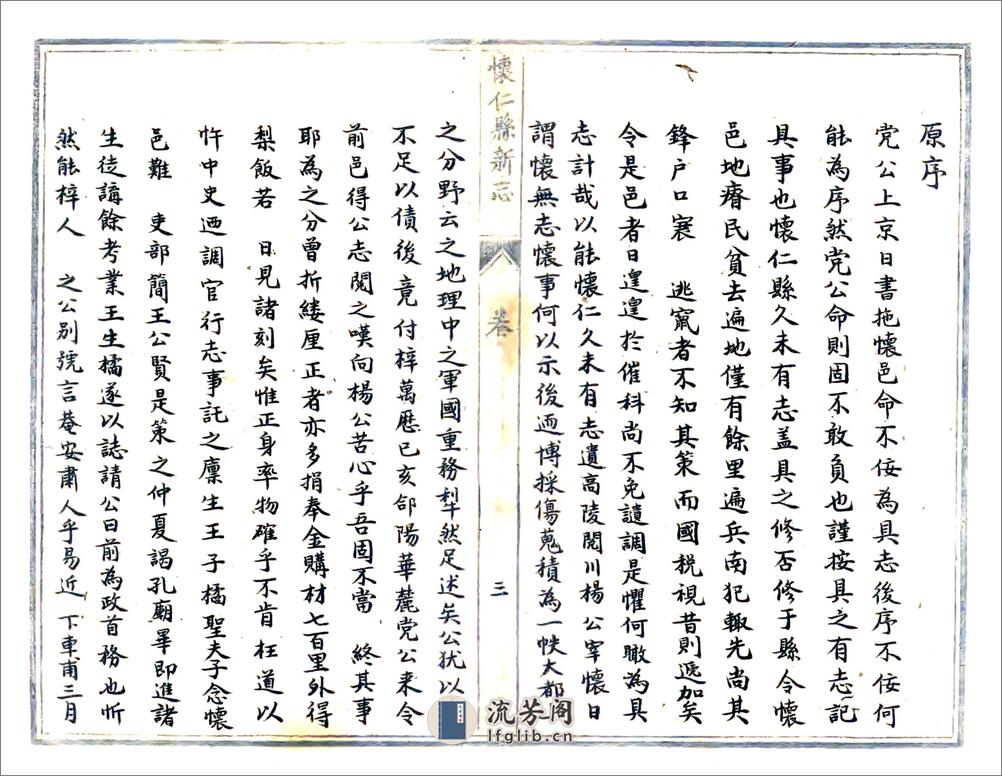 原序
党公上京日書拖懷邑命不佞為具志後序不佞何
能為序然党公命則固不敢負也謹按具之有志記
具事也懷仁縣久未有志盖具之修否修于縣令懷
邑地瘠民貧去遍地僅有餘里遍兵南犯輙先尚其
鋒户口寡 逃竄者不知其策而國税視昔則遞加矣
令是邑者日遑遑於催科尚不免譴調是懼何暇為具
志計哉以能懷仁久未有志遺高陵閱川楊公宰懷日
謂懷無志懷事何以示後迺博採傷蒐積為一帙大都
懷仁縣新志 卷 三
之分野云之地理中之軍國重務犁然足述矣公犹以
不足以債後竟付梓萬厯已亥郃陽華麓党公来令
前邑得公志閱之嘆向楊公苦心乎吾固不當 終其事
耶為之分曾折縷厘正者亦多捐奉金購材七百里外得
梨飯若 日見諸刻矣惟正身率物確乎不肯 枉道以
忤中史迺調官行志事託之廪生王子橘聖夫子念懷
邑難 吏部簡王公賢是策之仲夏謁孔廟畢即進諸
生徒講餘考業王生橘遂以誌請公曰前為政首務也忻
然能梓人 之公别號言菴安肅人乎易近 下車甫三月
流芳阁
lfglib.cn